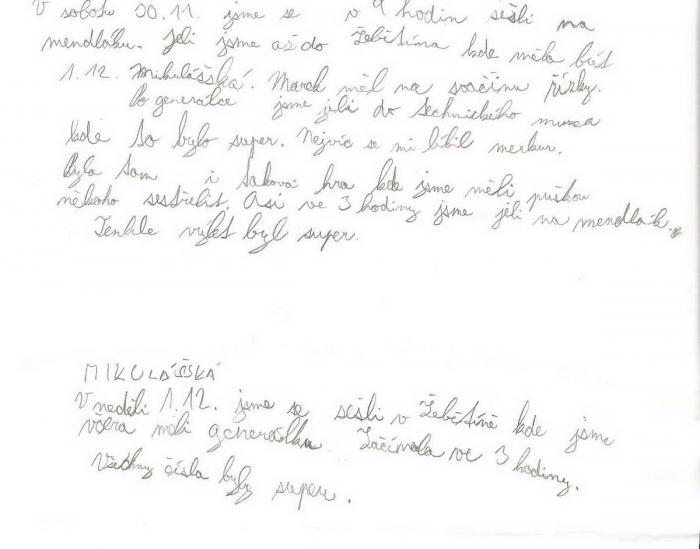 V sobotu 30.11. jsme se v 9 hodin sešli na
mendlaku. Jeli jsme až do Žebětína kde měla být
1.12. Mikulášská. Marek měl na svačinu řízky.
Po generálce jsme jeli do technického muzea
kde to bylo super. Nejvíc se mi líbil merkur.
Byla tam i taková hra kde jsme měli puškou
někoho sestřelit. Asi ve 3 hodiny jsme jeli na mendlák.
Tenhle výlet byl super.
MIKULÁŠSKÁ
V neděli 1.12. jsme se sešli v Žebětíně kde jsme
včera měli generálku. Začínala ve 3 hodiny.
Všechny čísla byly super.